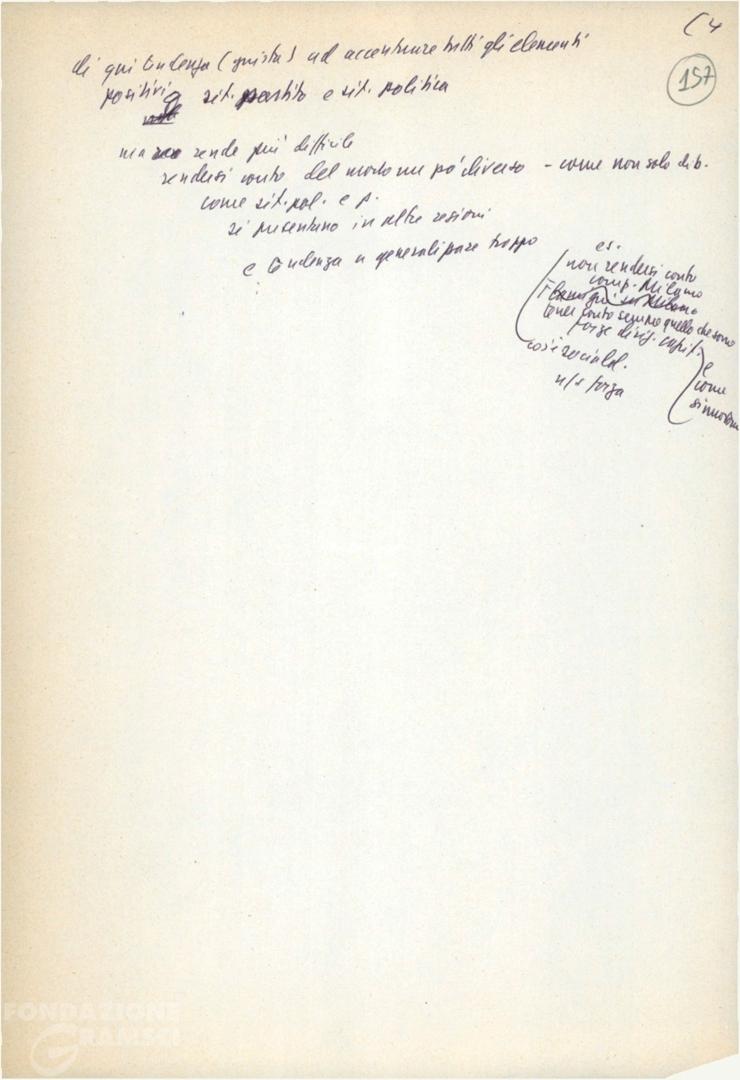 (4
157
di qui tendenza (giusta) ad accentuare tutti gli elementi
positivi sit. partito e sit. politica
ma rende più difficile
rendersi conto del modo un po' diverso - come non solo dib.
come sit. pol. e p.
si presentano in altre regioni
e tendenza a generalizzare troppo
es.
non rendersi conto
comp. Milano
tener conto seguono quello che sono
forze dirig. capit.
così sociald.
n/s forza
e
come
si muovono
FONDAZIONE
GRAMSCI